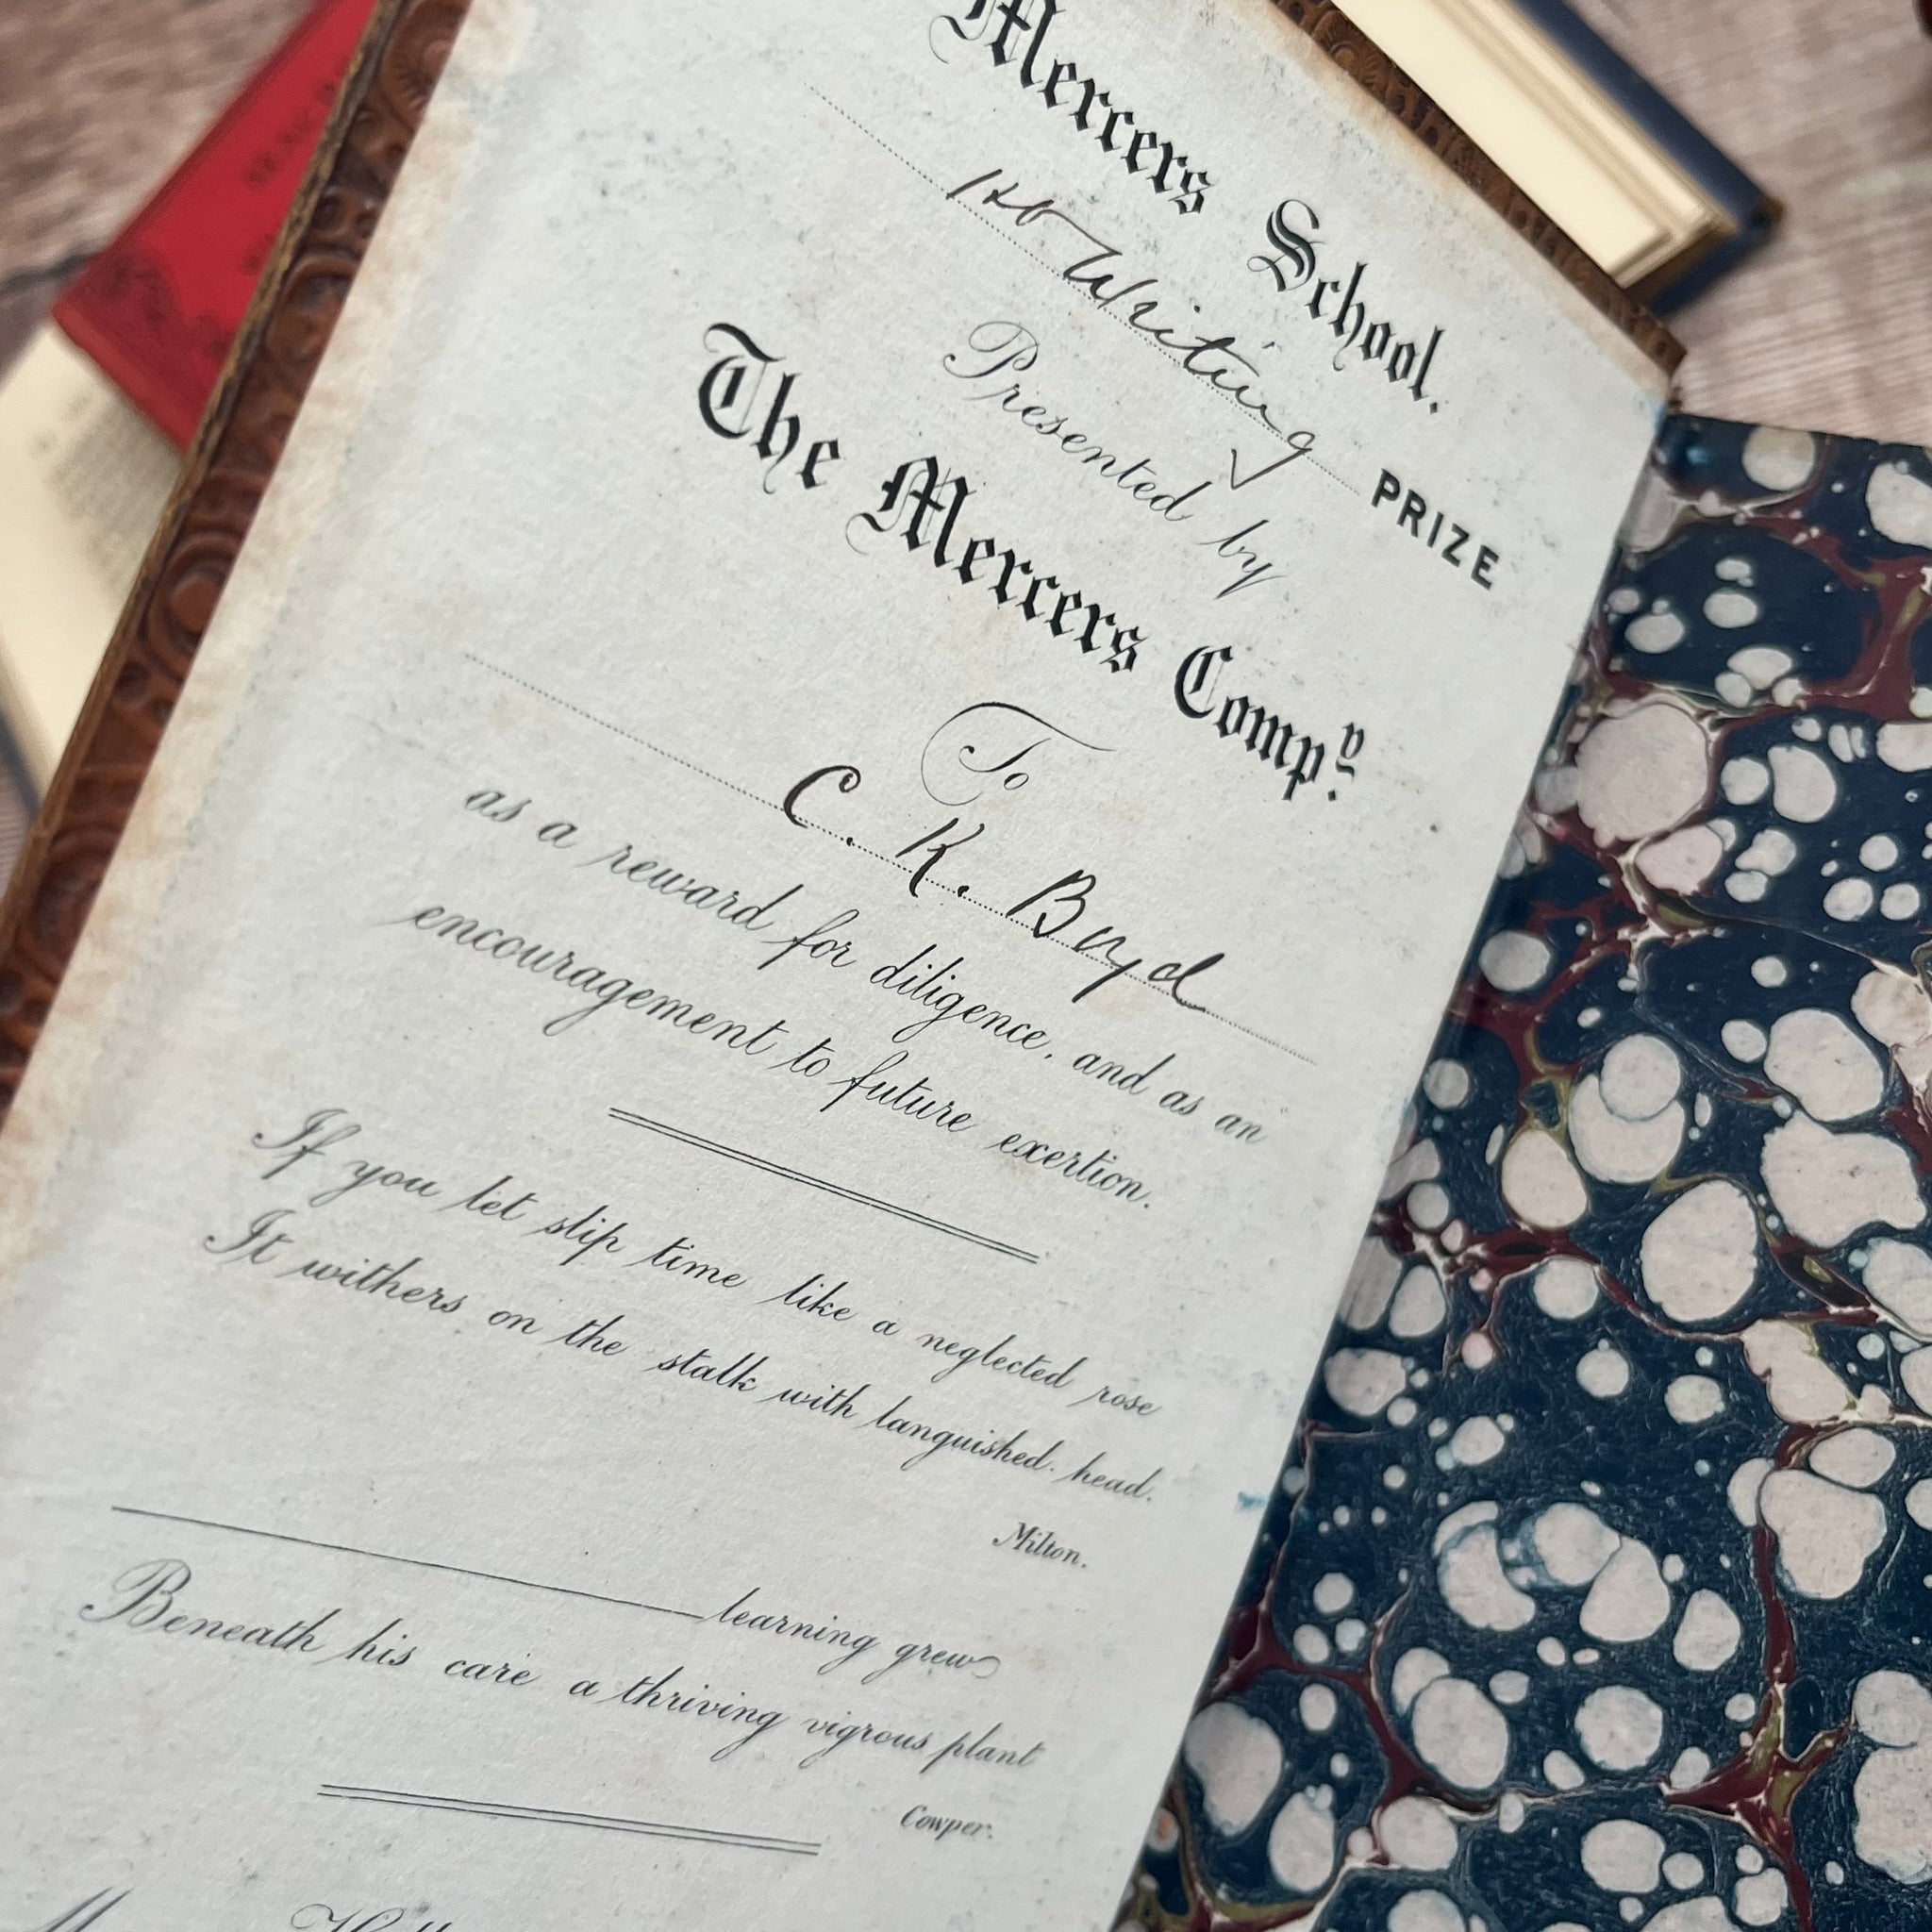 Mercers School.
Writing PRIZE
Presented by
The Mercers Compy.
To
C. K. Boyd
as a reward for diligence, and as an
encouragement to future exertion.
If you let slip time like a neglected rose
It withers on the stalk with languished head.
Milton.
learning grew
Beneath his care a thriving vigrous plant
Cowper.